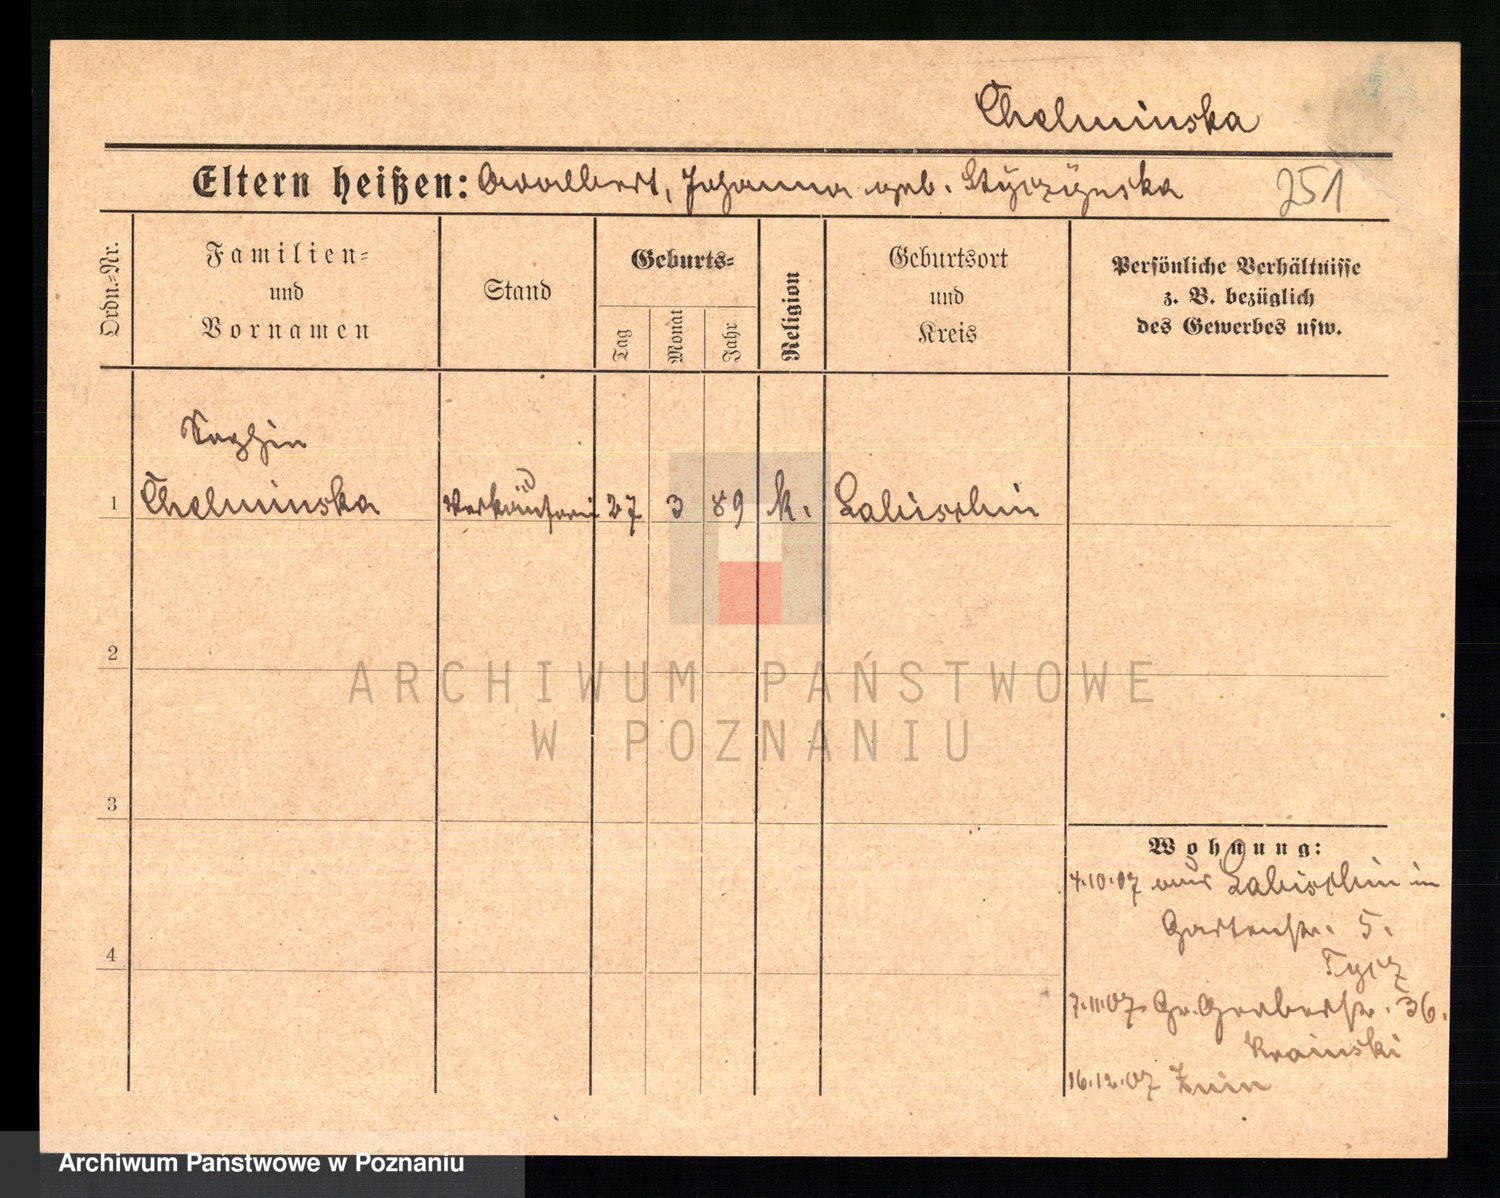 Chelminska
Eltern heißen: Adalbert, Johanna geb. Styczynska
251
Ordn.-Nr.
Familien-
und
Vornamen
Stand
Geburts-
Tag
Monat
Jahr
Religion
Geburtsort
und
Kreis
Persönliche Verhältnisse
z. B. bezüglich
des Gewerbes usw.
Sophie
1 Chelminska Verkäuferin 27 3 89 k. Labischin
2
3
4
ARCHIWUM PAŃSTWOWE
W POZNANIU
Wohnung:
4.10.07 aus Labischin in
Gartenstr. 5.
7.11.07 Gr. Gerberstr. 36.
Krainski
16.12.07 Znin
Archiwum Państwowe w Poznaniu